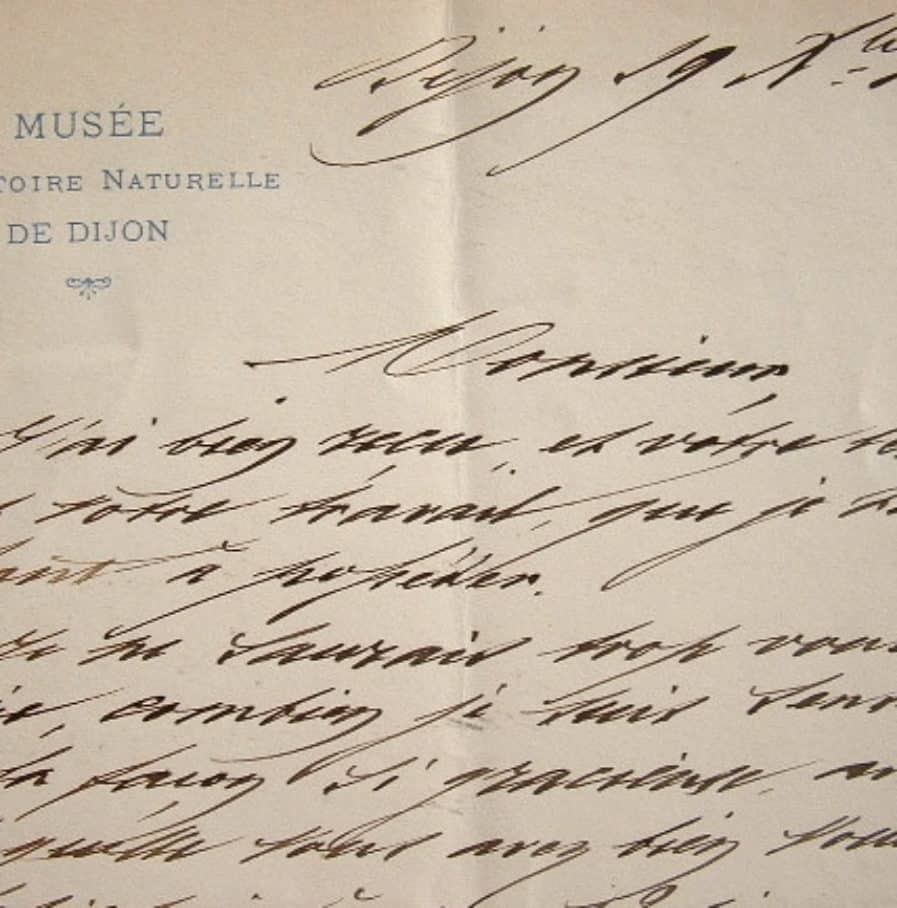 Dijon 19 X
MUSÉE
TOIRE NATURELLE
DE DIJON
Monsieur
J'ai bien reçu, et votre
votre travail, que je
à posséder.
ne saurais trop vous
combien je suis
façon si gracieuse,
vous avez bien